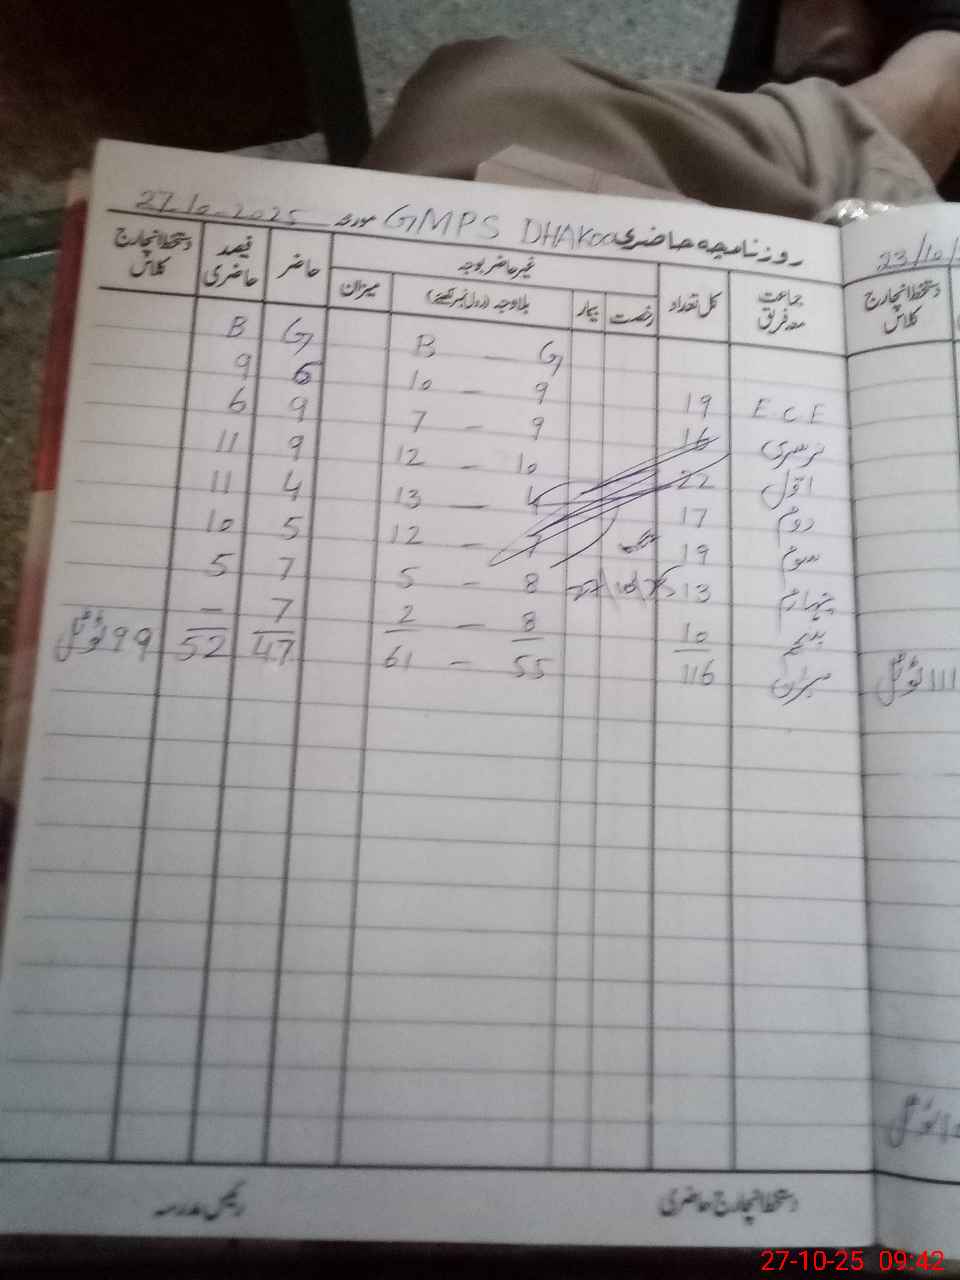 روزنامچہ حاضری GMPS DHAKoo مورخہ 27-10-2025
جماعت معہ فریق کل تعداد غیر حاضر بوجہ حاضر فیصد حاضری دستخط انچارج کلاس
رخصت بیمار بلاوجہ (رول نمبر لکھیئے) میزان
G — B G B
E C E 19 9 — 10 6 9
نرسری 16 9 — 7 9 6
اول 22 10 — 12 9 11
دوم 17 4 — 13 4 11
سوم 19 7 — 12 5 10
چہارم 13 8 — 5 7 5
پنجم 10 8 — 2 7 –
میزان 116 55 — 61 47 52 99 ٹوٹل
27/10/25
دستخط انچارج حاضری رئیس مدرسہ
23/10/
دستخط انچارج کلاس
111 ٹوٹل
27-10-25 09:42